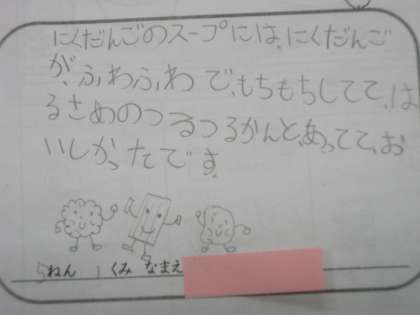 にくだんごのスープには、にくだんご
が、ふわふわで、もちもちしてて、は
るさめのつるつるかんと、あってて、お
いしかったです。
5ねん 1くみ なまえ